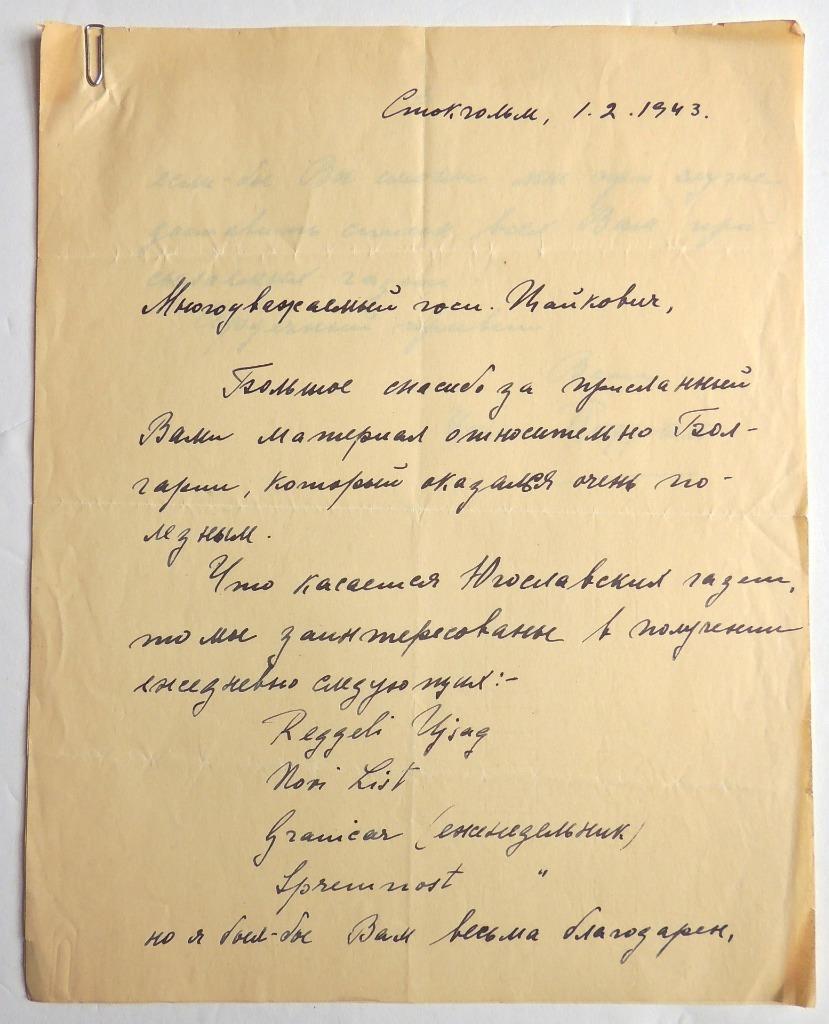 Стокгольм, 1.2.1943.
Многоуважаемый госп. Цайкович,
Большое спасибо за присланный
Вами материал относительно Бол-
гарии, который оказался очень по-
лезным.
Что касается Югославских газет,
то мы заинтересованы в получении
ежедневно следующих:-
Reggeli Ujsag
Novi List
Granicar (еженедельник)
Spremnost "
но я был-бы Вам весьма благодарен,